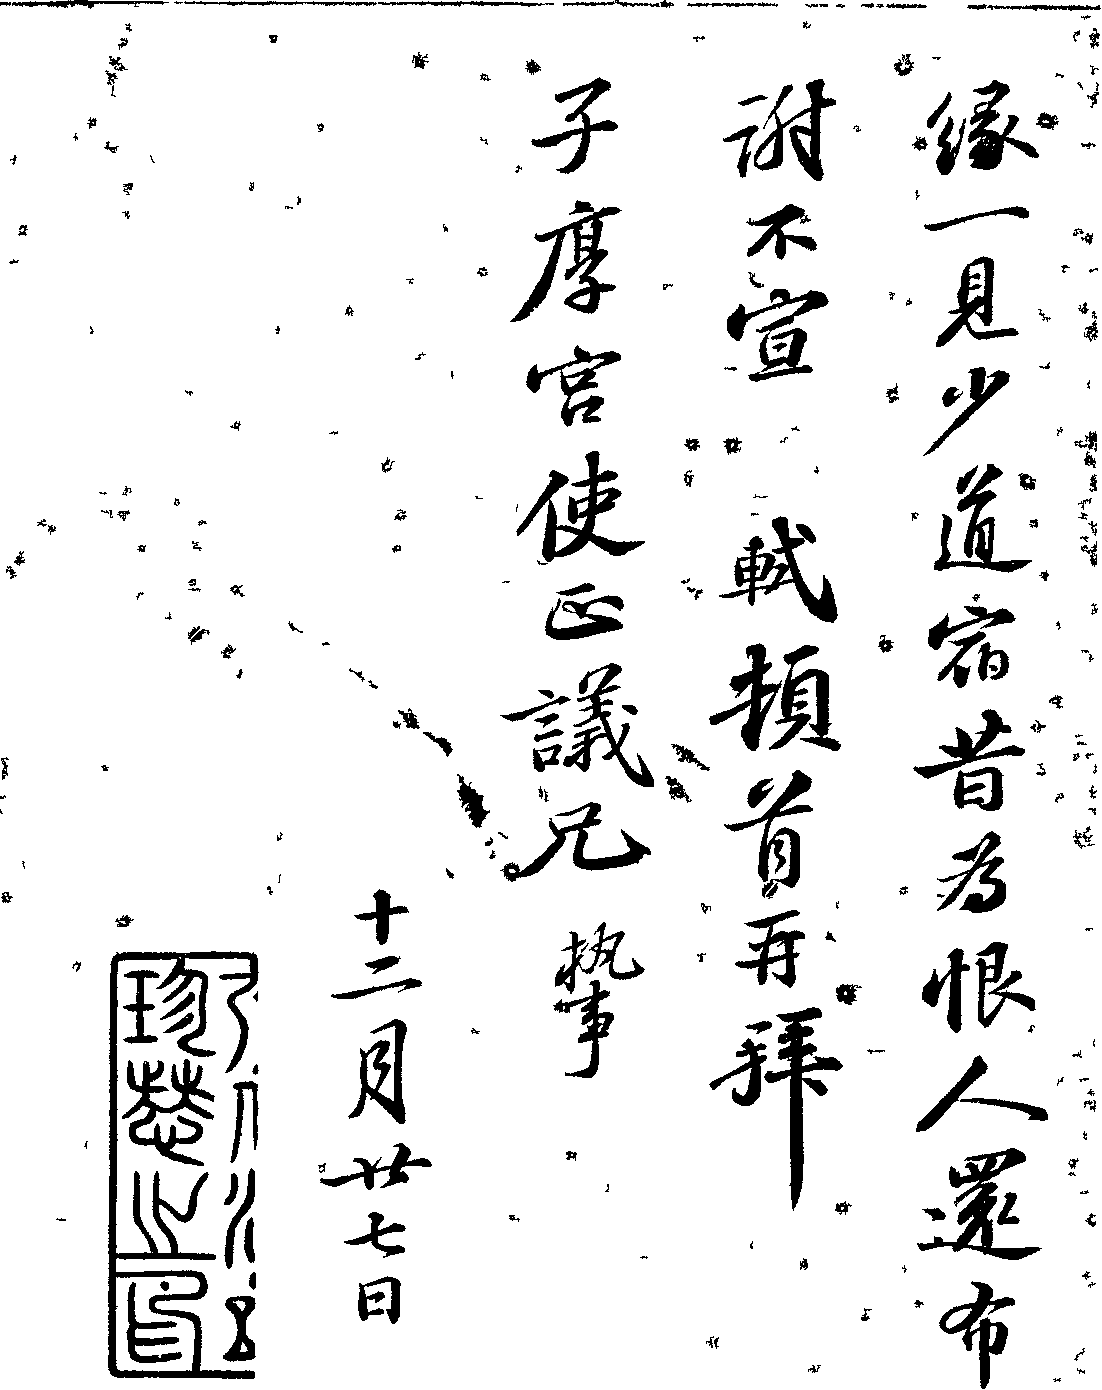 緣一見少道宿昔為恨人還布
謝不宣　軾頓首再拜
子厚宮使正議兄　執事
十二月廿七日